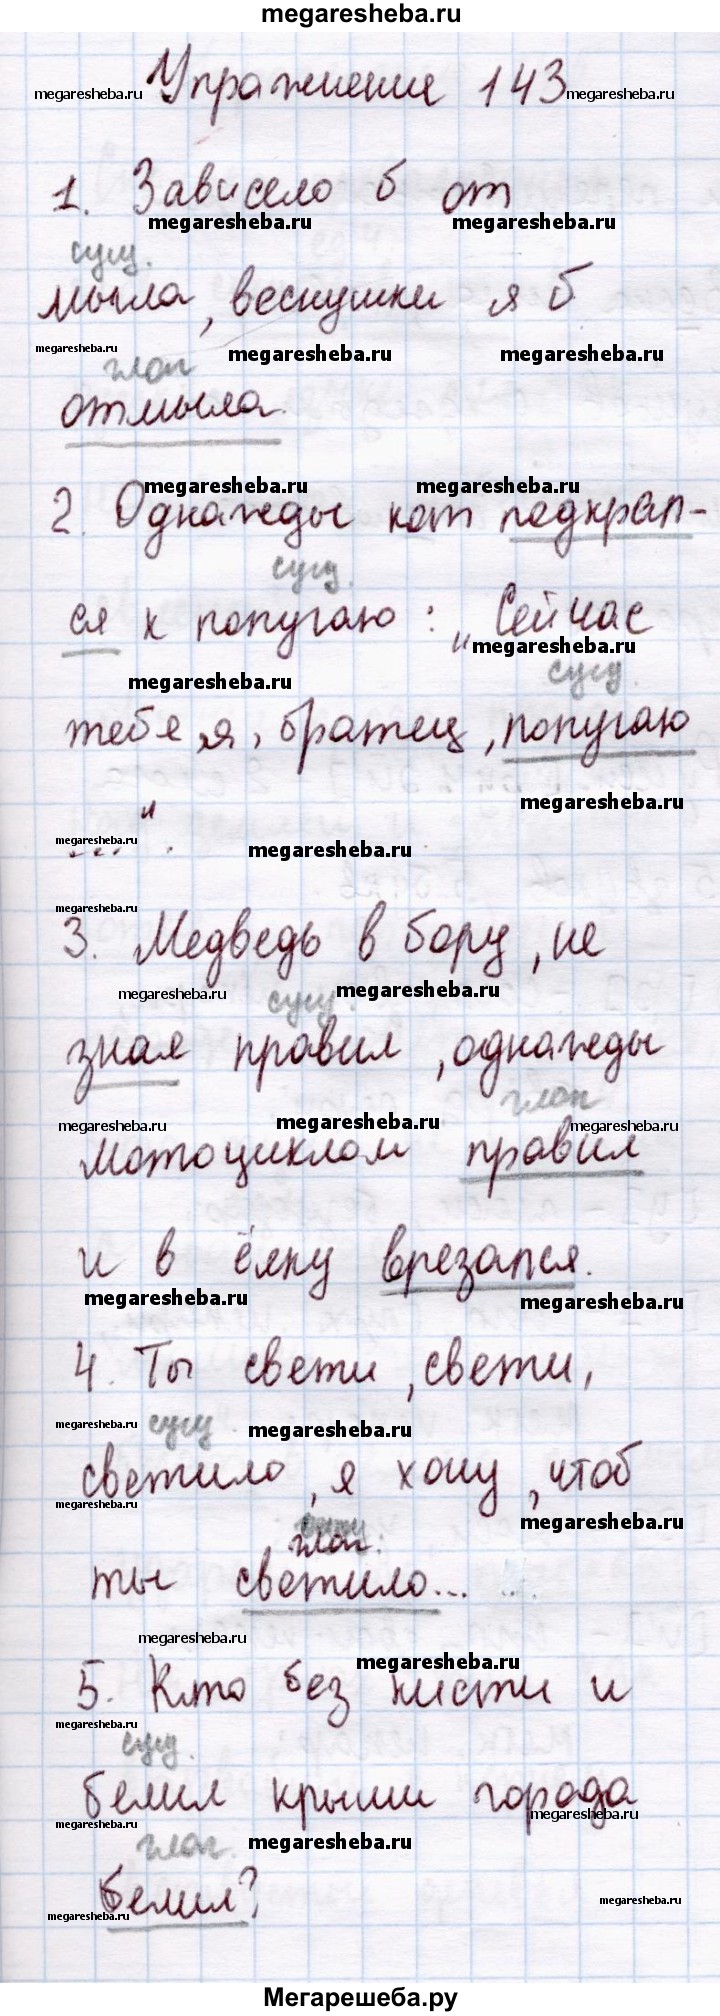 megaresheba.ru
Упражнение 143
megaresheba.ru megaresheba.ru
1. Зависело б от
megaresheba.ru megaresheba.ru
сущ.
мыла, веснушки я б
megaresheba.ru megaresheba.ru megaresheba.ru
глаг
отмыла.
megaresheba.ru megaresheba.ru
2. Однажды кот подкрал-
сущ.
ся к попугаю: „Сейчас
megaresheba.ru megaresheba.ru
сущ.
тебя, я, братец, попугаю
megaresheba.ru
...".
megaresheba.ru megaresheba.ru
megaresheba.ru
3. Медведь в бору, не
megaresheba.ru megaresheba.ru
сущ.
зная правил, однажды
глаг
megaresheba.ru megaresheba.ru megaresheba.ru
мотоциклом правил
и в ёлку врезался.
megaresheba.ru megaresheba.ru
4. Ты свети, свети,
megaresheba.ru сущ. megaresheba.ru
светило, я хочу, чтоб
megaresheba.ru megaresheba.ru
глаг.
ты светило...
megaresheba.ru megaresheba.ru
5. Кто без кисти и
megaresheba.ru
сущ.
белил крыши города
megaresheba.ru megaresheba.ru megaresheba.ru
глаг.
белил?
megaresheba.ru megaresheba.ru
Мегарешеба.ру